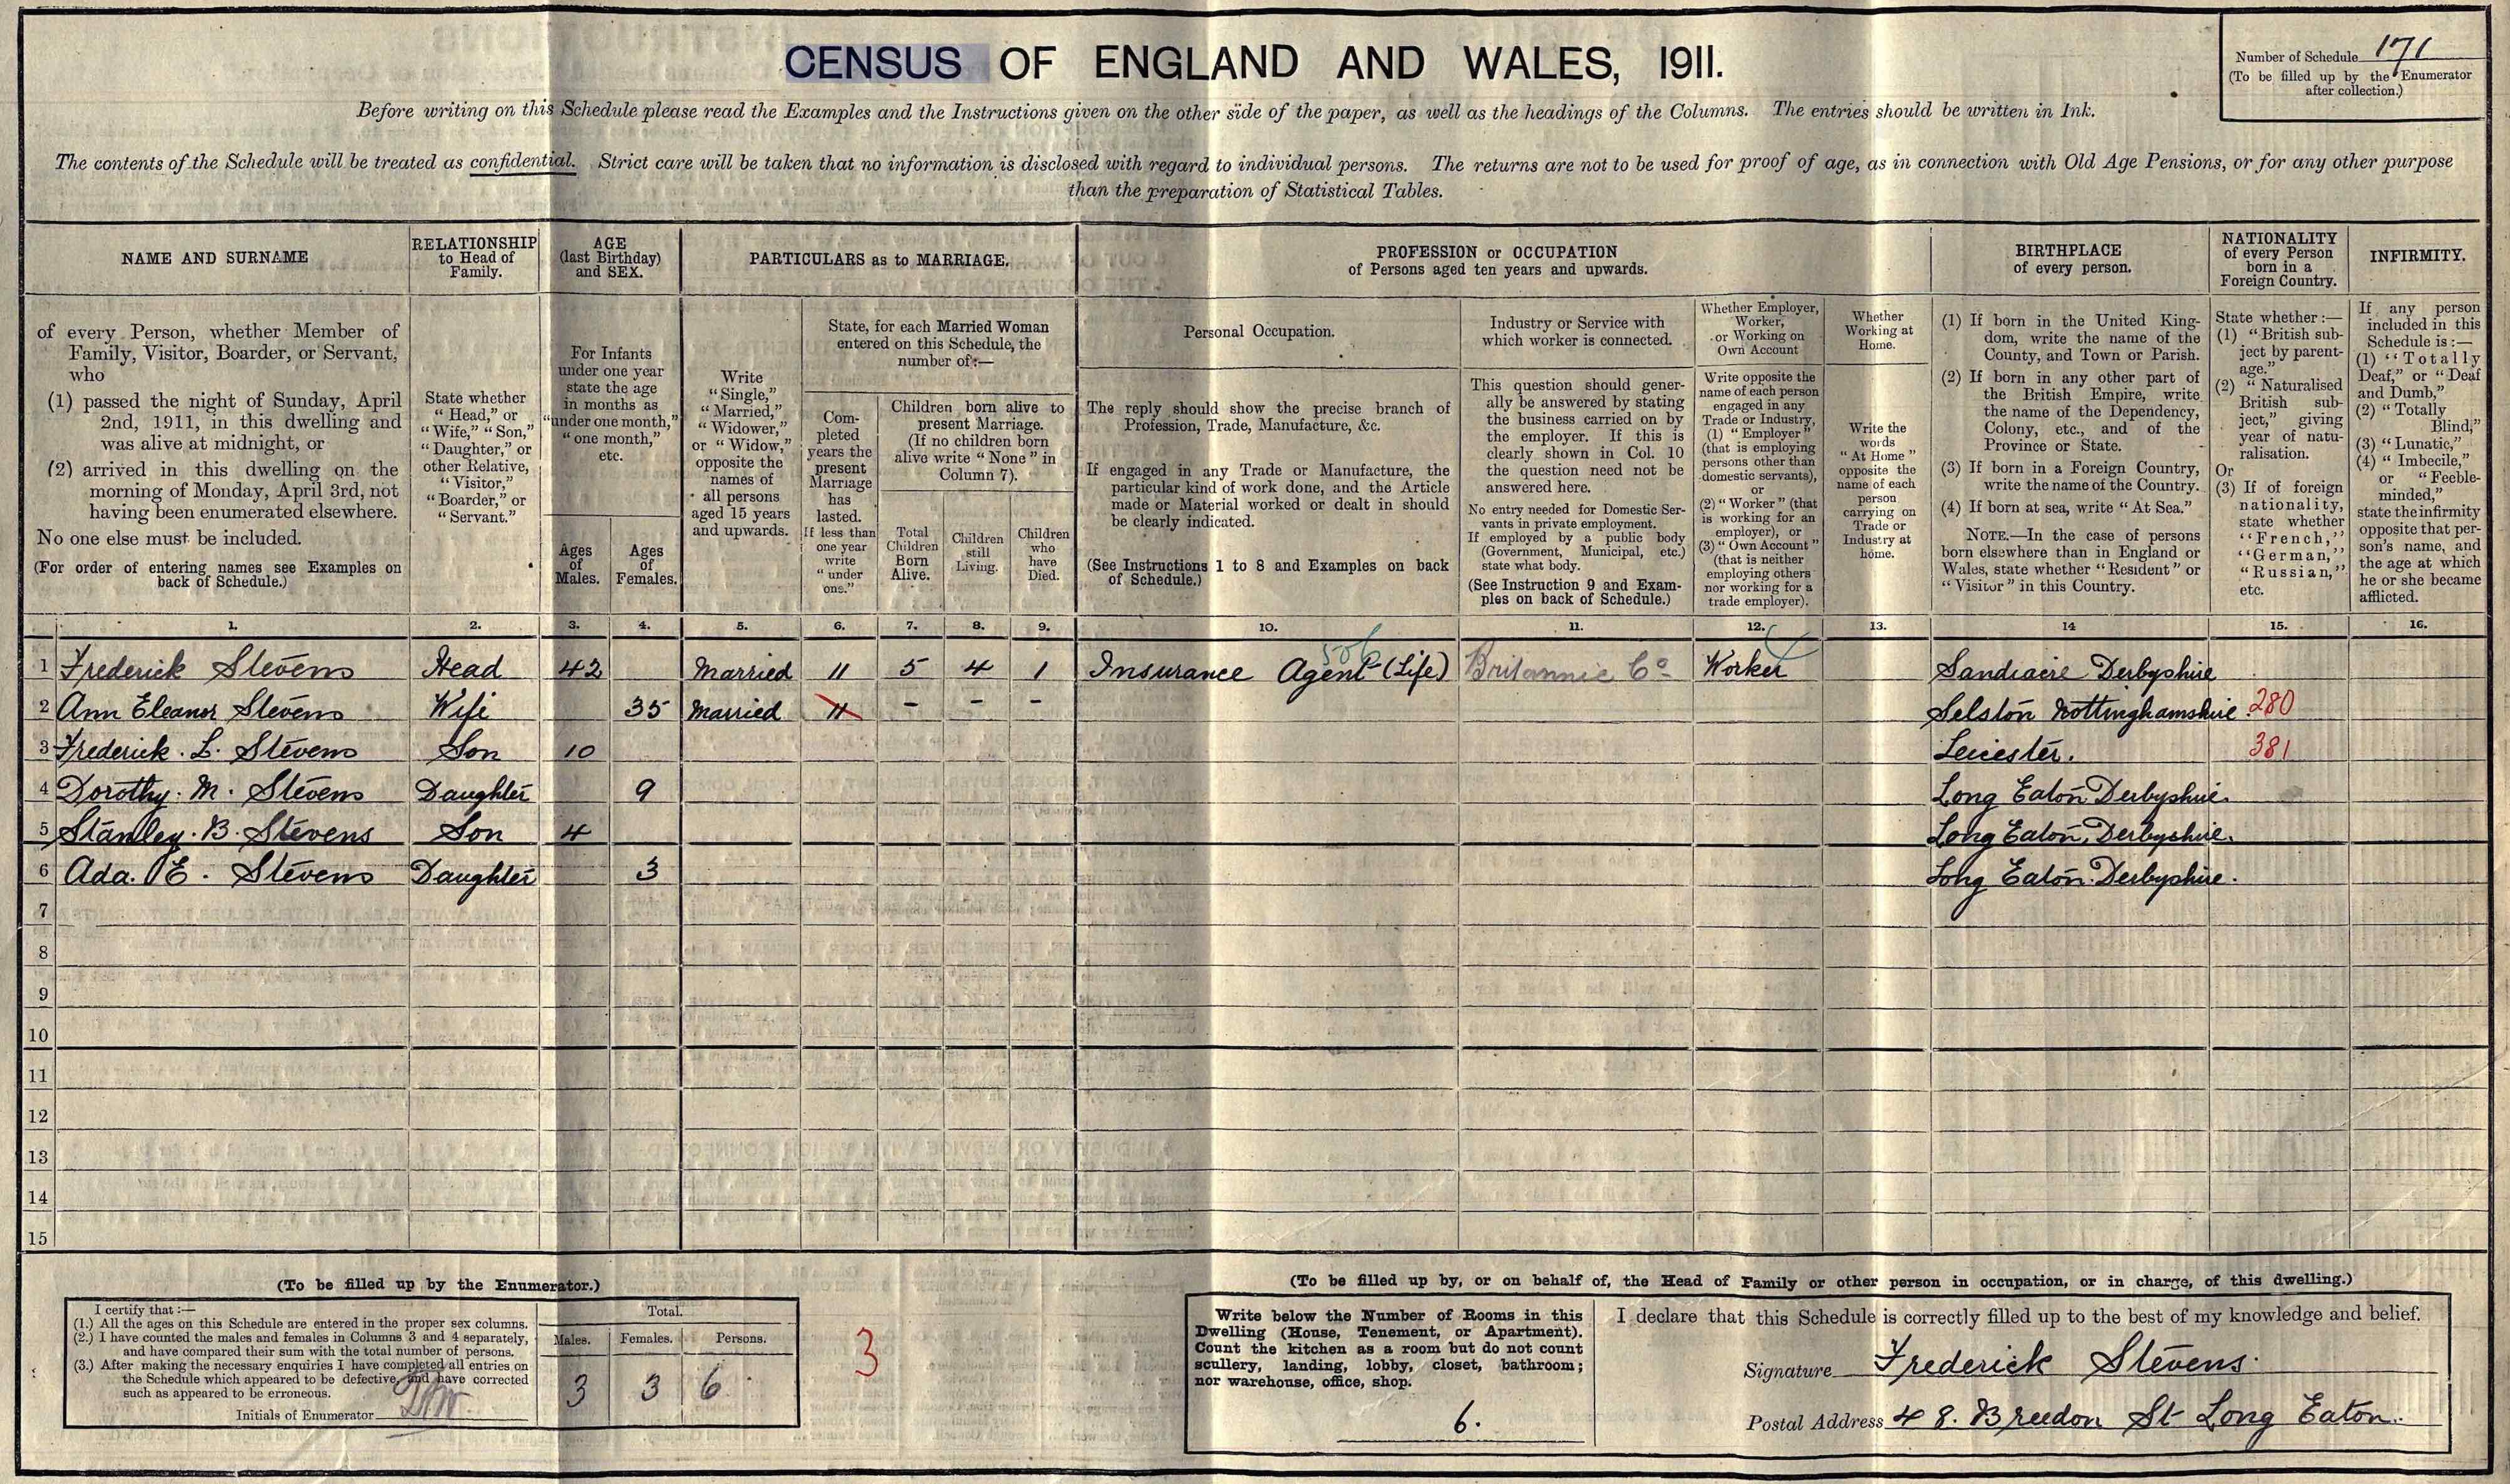 CENSUS OF ENGLAND AND WALES, 1911.
Number of Schedule 171
(To be filled up by the Enumerator
after collection.)
Before writing on this Schedule please read the Examples and the Instructions given on the other side of the paper, as well as the headings of the Columns. The entries should be written in Ink.
The contents of the Schedule will be treated as confidential. Strict care will be taken that no information is disclosed with regard to individual persons. The returns are not to be used for proof of age, as in connection with Old Age Pensions, or for any other purpose
than the preparation of Statistical Tables.
NAME AND SURNAME
of every Person, whether Member of
Family, Visitor, Boarder, or Servant,
who
(1) passed the night of Sunday, April
2nd, 1911, in this dwelling and
was alive at midnight, or
(2) arrived in this dwelling on the
morning of Monday, April 3rd, not
having been enumerated elsewhere.
No one else must be included.
(For order of entering names see Examples on
back of Schedule.)
RELATIONSHIP
to Head of
Family.
State whether
"Head," or
"Wife," "Son,"
"Daughter," or
other Relative,
"Visitor,"
"Boarder," or
"Servant."
AGE
(last Birthday)
and SEX.
For Infants
under one year
state the age
in months as
"under one month,"
"one month,"
etc.
Ages
of
Males.
Ages
of
Females.
PARTICULARS as to MARRIAGE.
Write
"Single,"
"Married,"
"Widower,"
or "Widow,"
opposite the
names of
all persons
aged 15 years
and upwards.
State, for each Married Woman
entered on this Schedule, the
number of:—
Com-
pleted
years the
present
Marriage
has
lasted.
If less than
one year
write
"under
one."
Children born alive to
present Marriage.
(If no children born
alive write "None" in
Column 7).
Total
Children
Born
Alive.
Children
still
Living.
Children
who
have
Died.
PROFESSION or OCCUPATION
of Persons aged ten years and upwards.
Personal Occupation.
The reply should show the precise branch of
Profession, Trade, Manufacture, &c.
If engaged in any Trade or Manufacture, the
particular kind of work done, and the Article
made or Material worked or dealt in should
be clearly indicated.
(See Instructions 1 to 8 and Examples on back
of Schedule.)
Industry or Service with
which worker is connected.
This question should gener-
ally be answered by stating
the business carried on by
the employer. If this is
clearly shown in Col. 10
the question need not be
answered here.
No entry needed for Domestic Ser-
vants in private employment.
If employed by a public body
(Government, Municipal, etc.)
state what body.
(See Instruction 9 and Exam-
ples on back of Schedule.)
Whether Employer,
Worker,
or Working on
Own Account
Write opposite the
name of each person
engaged in any
Trade or Industry,
(1) "Employer"
(that is employing
persons other than
domestic servants),
or
(2) "Worker" (that
is working for an
employer), or
(3) "Own Account"
(that is neither
employing others
nor working for a
trade employer).
Whether
Working at
Home.
Write the
words
"At Home"
opposite the
name of each
person
carrying on
Trade or
Industry at
home.
BIRTHPLACE
of every person.
(1) If born in the United King-
dom, write the name of the
County, and Town or Parish.
(2) If born in any other part of
the British Empire, write
the name of the Dependency,
Colony, etc., and of the
Province or State.
(3) If born in a Foreign Country,
write the name of the Country.
(4) If born at sea, write "At Sea."
NOTE.—In the case of persons
born elsewhere than in England or
Wales, state whether "Resident" or
"Visitor" in this Country.
NATIONALITY
of every Person
born in a
Foreign Country.
State whether:—
(1) "British sub-
ject by parent-
age."
(2) "Naturalised
British sub-
ject," giving
year of natu-
ralisation.
Or
(3) If of foreign
nationality,
state whether
"French,"
"German,"
"Russian,"
etc.
INFIRMITY.
If any person
included in this
Schedule is:—
(1) "Totally
Deaf," or "Deaf
and Dumb,"
(2) "Totally
Blind,"
(3) "Lunatic,"
(4) "Imbecile,"
or "Feeble-
minded,"
state the infirmity
opposite that per-
son's name, and
the age at which
he or she became
afflicted.
1. 2. 3. 4. 5. 6. 7. 8. 9. 10. 11. 12. 13. 14 15. 16.
506
1 Frederick Stevens Head 42 Married 11 5 4 1 Insurance Agent (Life) Britannic Co Worker Sandiacre Derbyshire
2 Ann Eleanor Stevens Wife 35 Married 11 - - - Selston Nottinghamshire 280
3 Frederick. L. Stevens Son 10 Leicester. 381
4 Dorothy. M. Stevens Daughter 9 Long Eaton Derbyshire.
5 Stanley. B. Stevens Son 4 Long Eaton, Derbyshire.
6 Ada. E. Stevens Daughter 3 Long Eaton. Derbyshire.
7
8
9
10
11
12
13
14
15
(To be filled up by the Enumerator.)
I certify that:—
(1.) All the ages on this Schedule are entered in the proper sex columns.
(2.) I have counted the males and females in Columns 3 and 4 separately,
and have compared their sum with the total number of persons.
(3.) After making the necessary enquiries I have completed all entries on
the Schedule which appeared to be defective, and have corrected
such as appeared to be erroneous.
Initials of Enumerator
Total.
Males. Females. Persons.
3 3 6
3
(To be filled up by, or on behalf of, the Head of Family or other person in occupation, or in charge, of this dwelling.)
Write below the Number of Rooms in this
Dwelling (House, Tenement, or Apartment).
Count the kitchen as a room but do not count
scullery, landing, lobby, closet, bathroom;
nor warehouse, office, shop.
6.
I declare that this Schedule is correctly filled up to the best of my knowledge and belief.
Signature Frederick Stevens.
Postal Address 48. Breedon St Long Eaton.